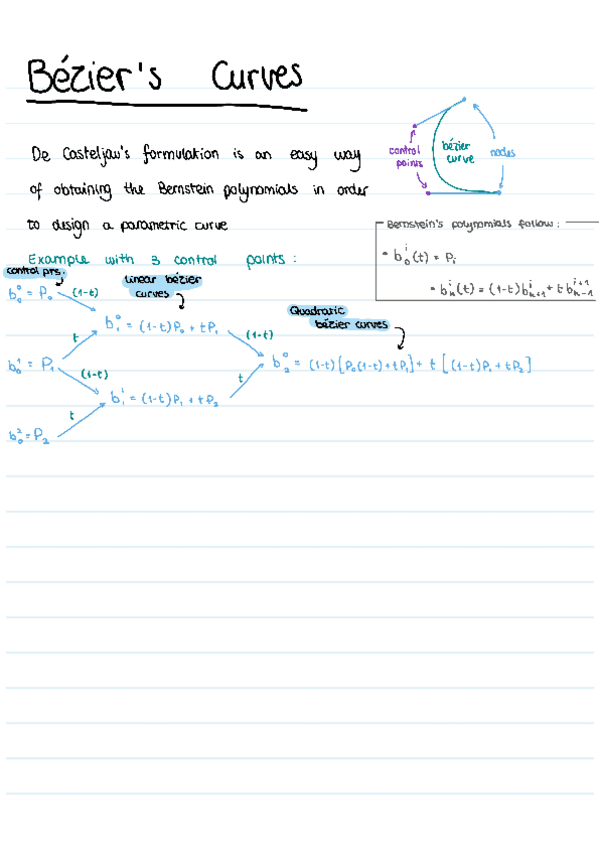 Bézier's Curves
De Casteljau's formulation is an easy way
of obtaining the Bernstein polynomials in order
to design a parametric curve
control points
bézier curve
nodes
Bernstein's polynomials follow:
• b₀ⁱ(t) = Pᵢ
• bₖⁱ(t) = (1-t)bₖ₊₁ⁱ + t bₖ₋₁ⁱ⁺¹
Example with 3 control points:
control pts.
linear bézier
curves
Quadratic
bézier curves
b₀⁰ = P₀ (1-t)
b₁⁰ = (1-t)P₀ + tP₁ (1-t)
t
b₀¹ = P₁ (1-t)
b₂⁰ = (1-t)[P₀(1-t)+tP₁] + t[(1-t)P₁ + tP₂]
t
b₁¹ = (1-t)P₁ + tP₂
t
b₀² = P₂